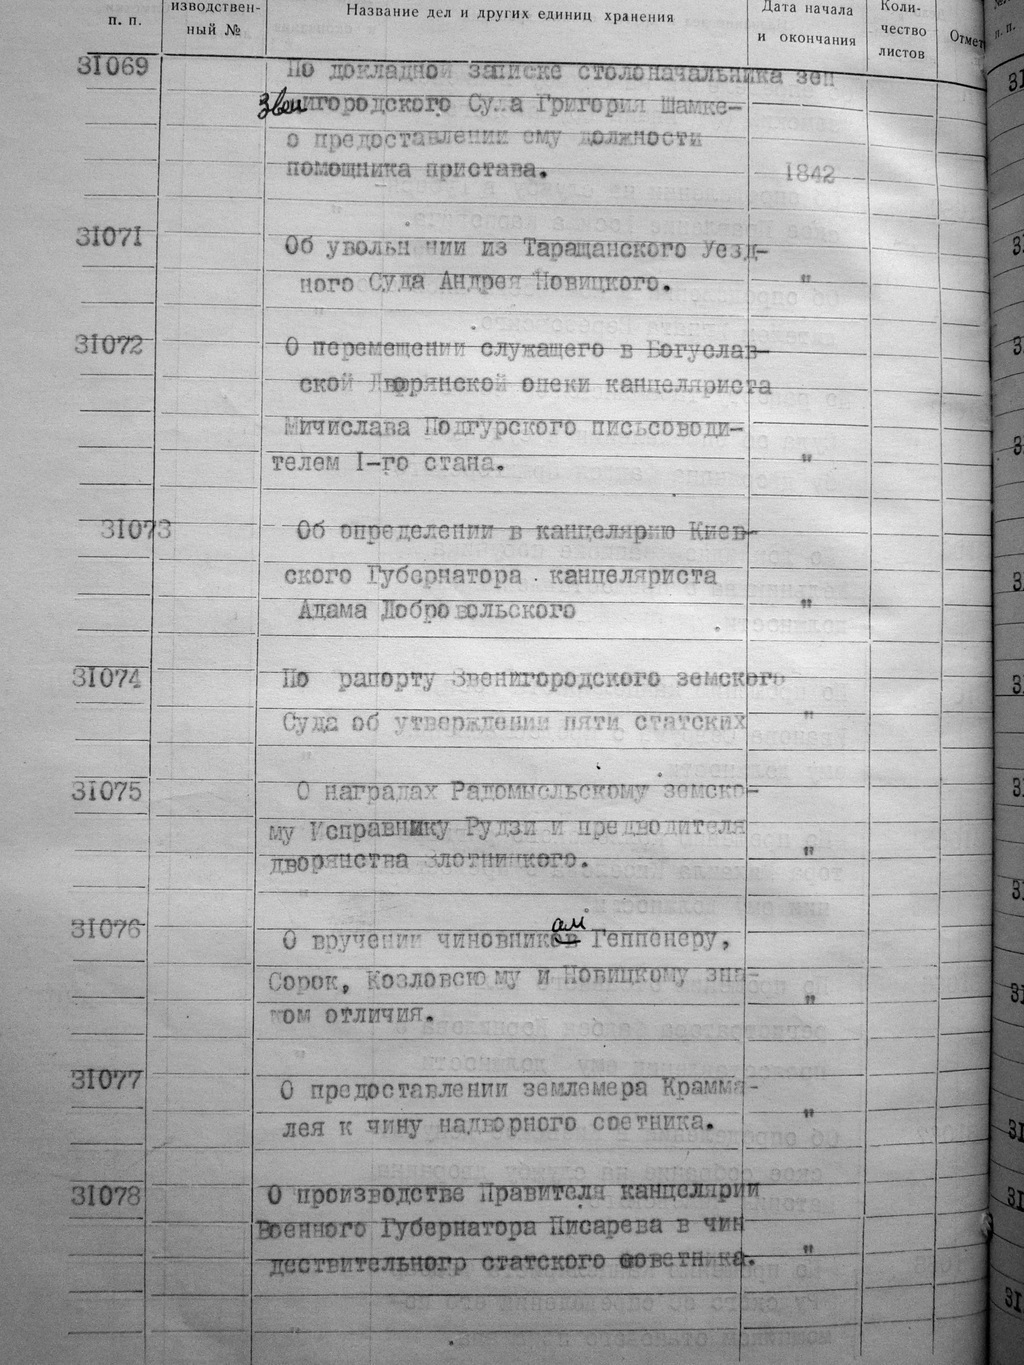 п. п.
изводствен-
ный №
Название дел и других единиц хранения
Дата начала
и окончания
Коли-
чество
листов
Отмет
31069
По докладной записке столоначальника зен
Звенигородского Суда Григория Шамке-
о предоставлении ему должности
помощника пристава.
1842
31071
Об увольн нии из Таращанского Уезд-
ного Суда Андрея Новицкого. "
31072
О перемещении служащего в Богуслав-
ской Дворянской опеки канцеляриста
Мичислава Подгурского письсоводи-
телем I-го стана. "
31073
Об определении в канцелярию Киев-
ского Губернатора канцеляриста
Адама Добровольского "
31074
По рапорту Звенигородского земского
Суда об утверждении пяти статских "
31075
О наградах Радомысльскому земско-
му Исправнику Рудзи и предводителя
дворянства Злотницкого. "
31076
О вручении чиновников ам Геппенеру,
Сорок, Козловскому и Новицкому зна-
ком отличия. "
31077
О предоставлении землемера Крамма-
лея к чину надворного соетника. "
31078
О производстве Правителя канцелярии
Военного Губернатора Писарева в чин
дествительногр статского советника. "